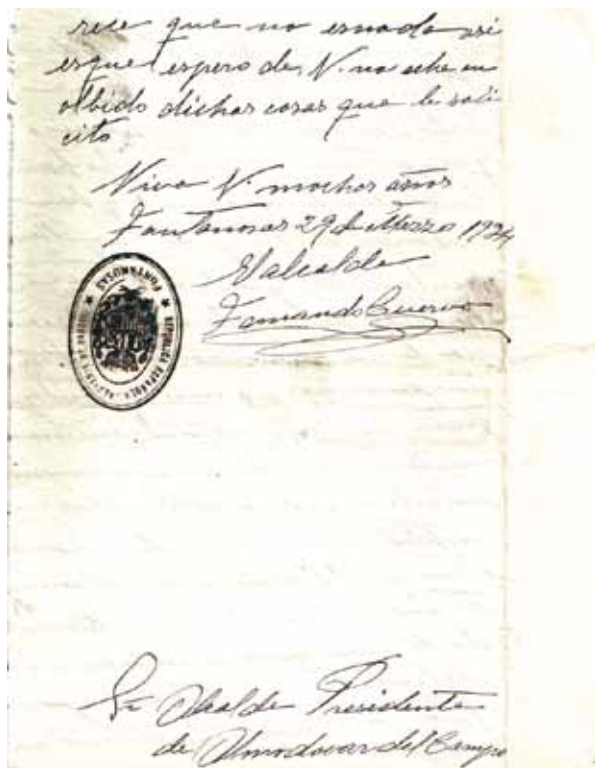 rece que no es nada asi
es que espero de V. no eche en
olbido dichas cosas que le soli
cito
Viva V. muchos años
Fontanosas 29 de Marzo 1934
El alcalde
Fernando Cuervo
FONTANOSAS
REPÚBLICA ESPAÑOLA
Sr Alcalde Presidente
de Almodovar del Campo